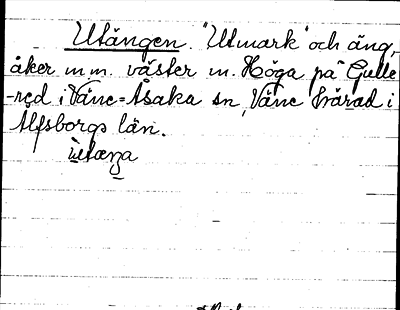 Utängen. "Utmark" och äng,
åker m m. väster m. Höga på Gulle-
-red i Väne-Åsaka sn, Väne härad i
Älfsborgs län.